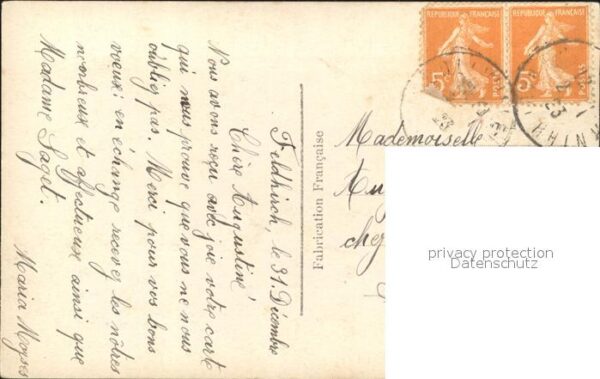 Feldkirch, le 31. Décembre
Chère Augustine!
Nous avons reçu avec joie votre carte
qui nous prouve que vous ne nous
oubliez pas. Merci pour vos bons
voeux; en échange recevez les nôtres
nombreux et affectueux ainsi que
Madame Saget.
Maria Moyses
Fabrication Française
RÉPUBLIQUE FRANÇAISE
5c
POSTES
RÉPUBLIQUE FRANÇAISE
5c
POSTES
Mademoiselle
chez
privacy protection
Datenschutz